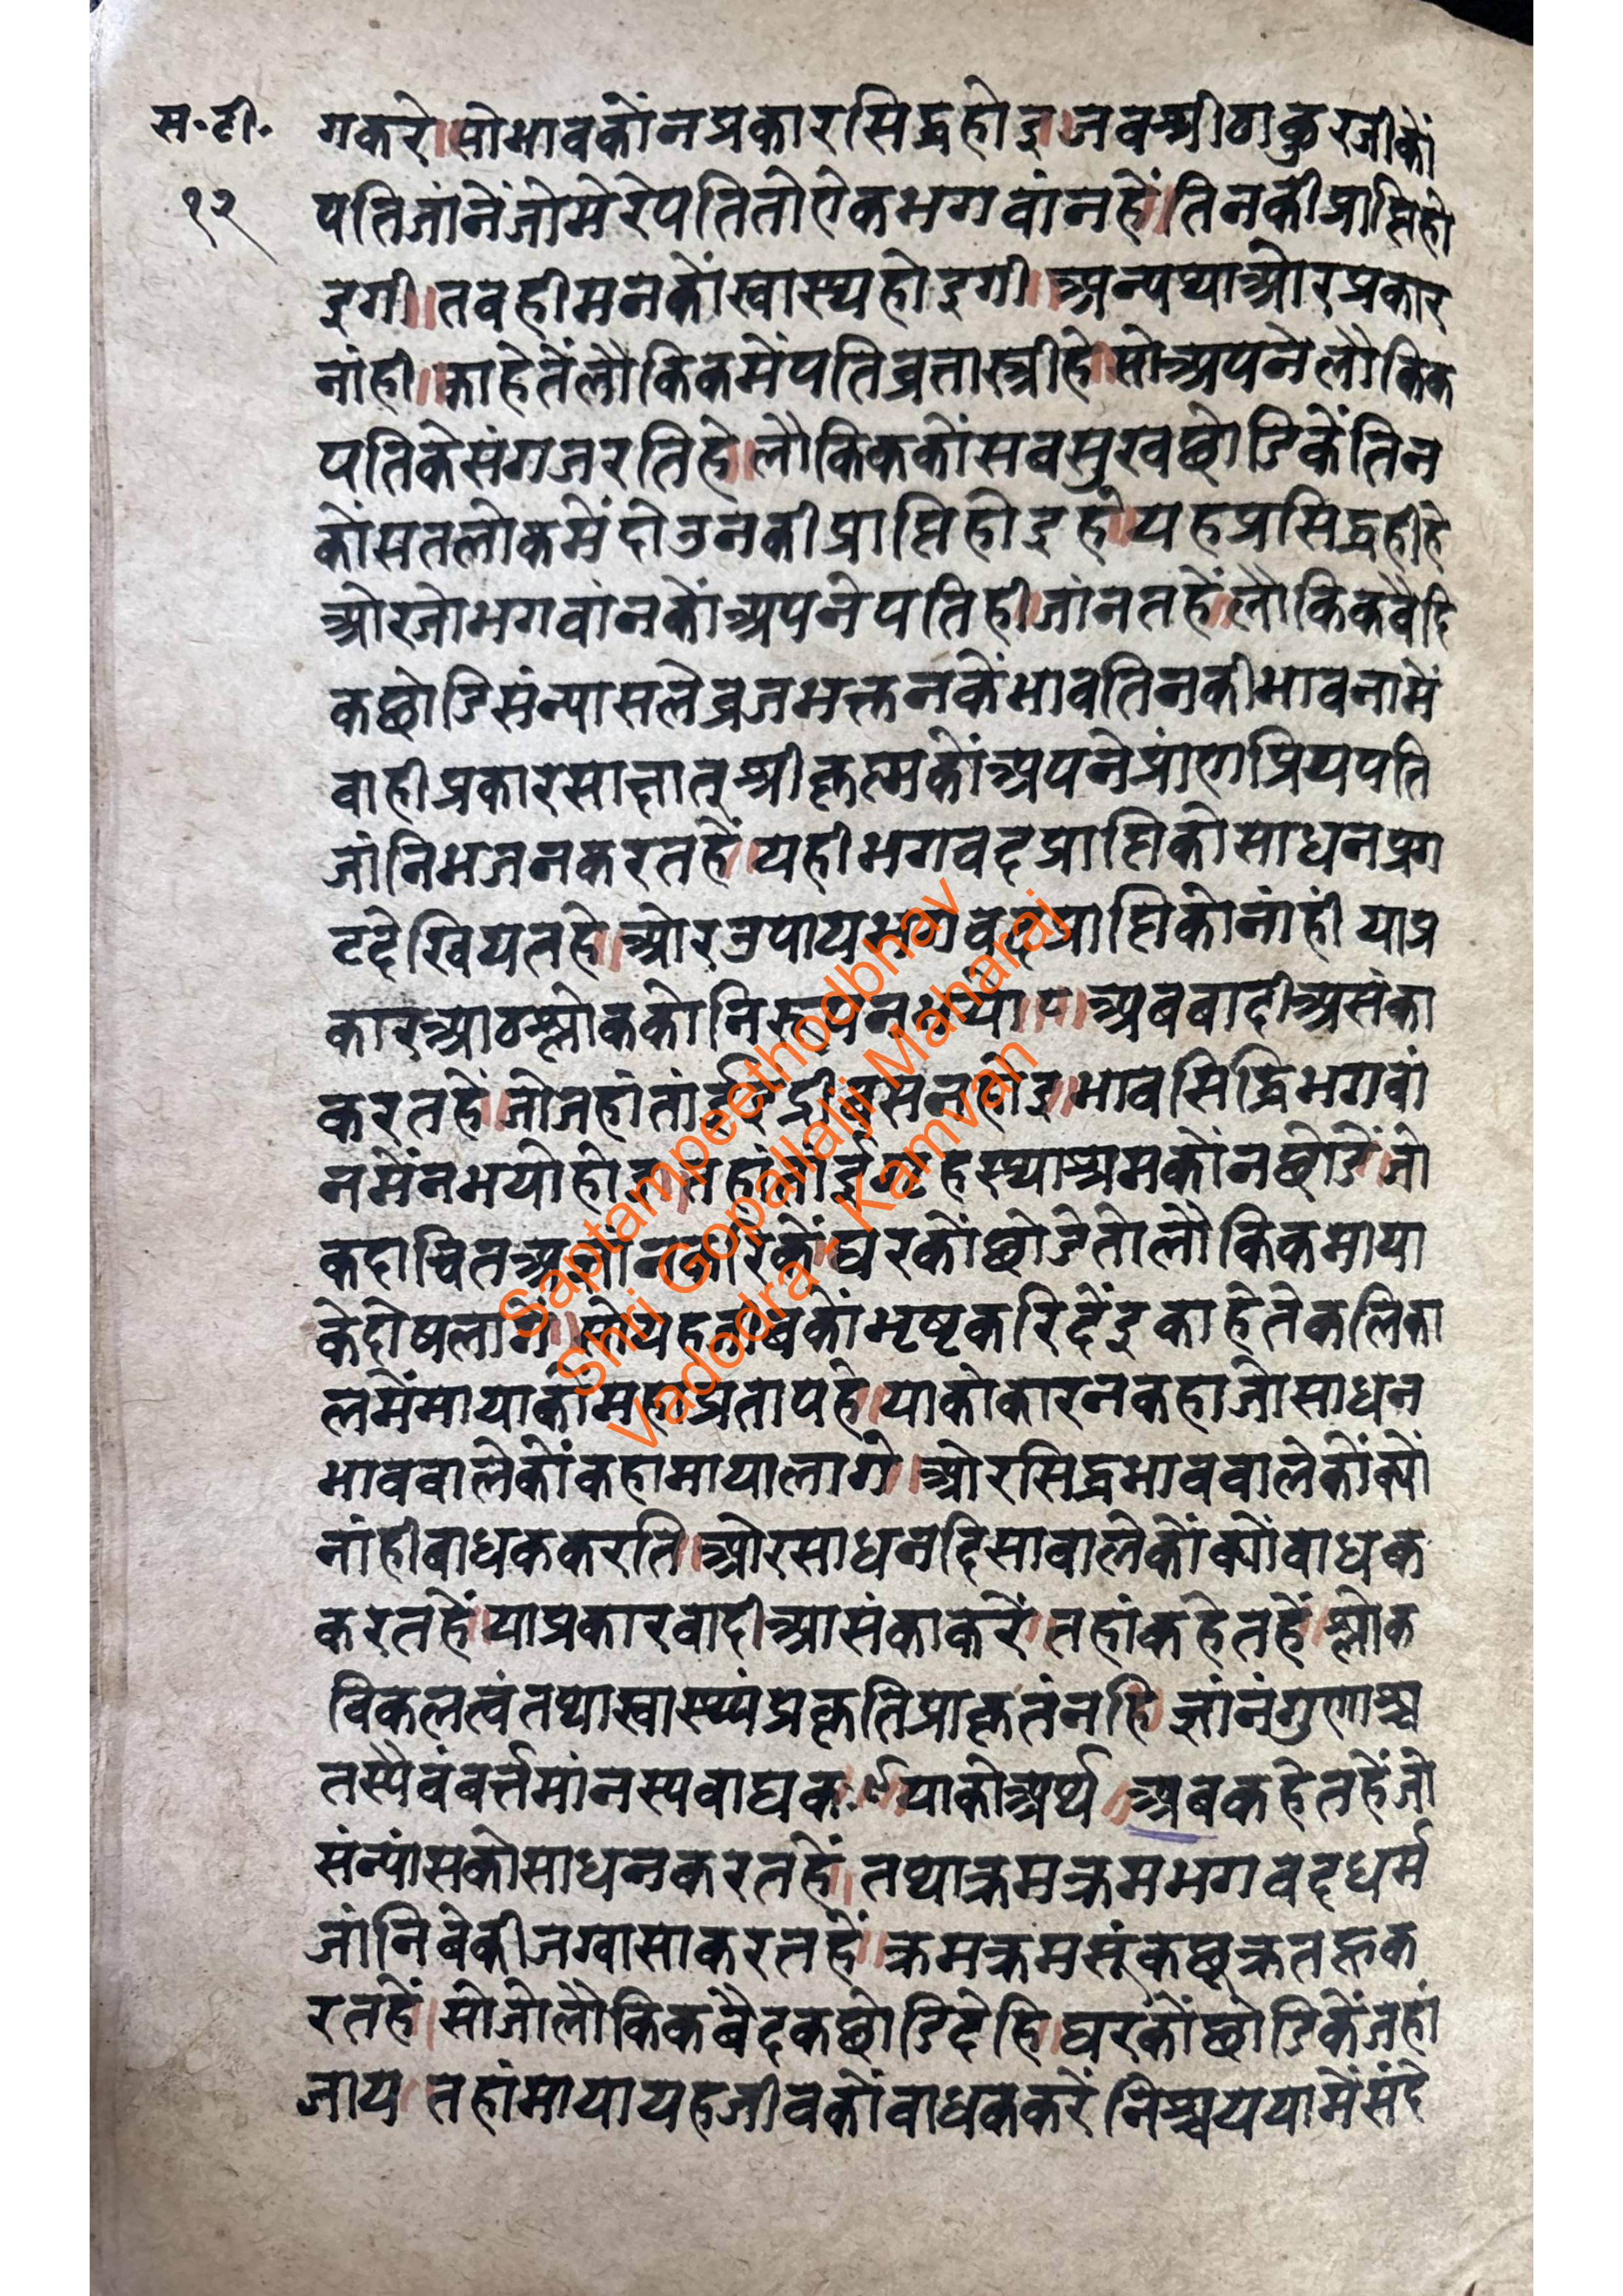 स॰टी॰
१२
गकरे॥सोभावकोंनप्रकारसिद्धहोइ॥जबश्रीठाकुरजीकों
पतिजांनेंजोमेरेपतितोऐकभगवांनहें॥तिनकीप्राप्तिहो
इगी॥तबहीमनकोंस्वास्थ्यहोइगी॥अन्यथाओरप्रकार
नांही॥काहेतेंलौकिकमेंपतिव्रतास्त्रीहे॥सोअपनेलौकिक
पतिकेसंगजरतिहे॥लौकिककोंसबसुखछोडिकेंतिन
कोंसतलोकमेंदोउनकीप्राप्तिहोइहे॥यहप्रसिद्धहीहे
ओरजोभगवांनकोंअपनेपतिहीजांनतहें॥लौकिकवैदि
कछोडिसंन्यासलेव्रजभक्तनकेंभावतिनकीभावनामें
वाहीप्रकारसाक्षात्श्रीकृष्णकोंअपनेप्रांणप्रियपति
जांनिभजनकरतहें॥यहीभगवदप्राप्तिकोसाधनप्रग
टदेखियतहे॥ओरउपायभगवदप्राप्तिकोनांहीं याप्र
कारआठश्लोककोनिरूपनभयो॥८॥अबवादीअसंका
करतहें॥जोजहांतांईइंद्रीबसनहोइ॥भावसिद्धिभगवां
नमेंनभयोहोइ॥तहांतांईगृहस्थाश्रमकोंनछोडें॥जो
कदाचितअज्ञांनकरिकेंघरकोंछोडेतोलौकिकमाया
केदोषलागें॥सोयहजीवकोंभृष्टकरिदेंइकाहेतेकलिका
लमेंमायाकोमहाप्रतापहे॥याकोकारनकहाजोसाधन
भाववालेकोंकहामायालागे॥ओरसिद्धभाववालेकोंक्यों
नांहीबाधककरति॥ओरसाधनदिसावालेकोंक्योंबाधक
करतहें॥याप्रकारवादीआसंकाकरें॥तहांकहेतहें॥श्लोक
विकलत्वंतथास्वास्थ्यंप्रकृतिप्राकृतंनहि॥ज्ञांनंगुणाश्च
तस्यैवंबर्त्तमांनस्यवाधकः॥९॥याकोअर्थ॥अबकहेतहेंजो
संन्यांसकोसाधनकरतहें॥तथाक्रमक्रमभगवदधर्म
जांनिबेकीजग्यासाकरतहें॥क्रमक्रमसूंकछूक्रतहूक
रतहें॥सोजोलौकिकबैदकछोडिदेहि॥घरकोंछोडिकेंजहां
जाय॥तहांमायायहजीवकोंबाधककरें॥निश्चययामेंसंदे
Saptampeethodbhav
Shri Gopallalji Maharaj
Vadodra - Kamvan